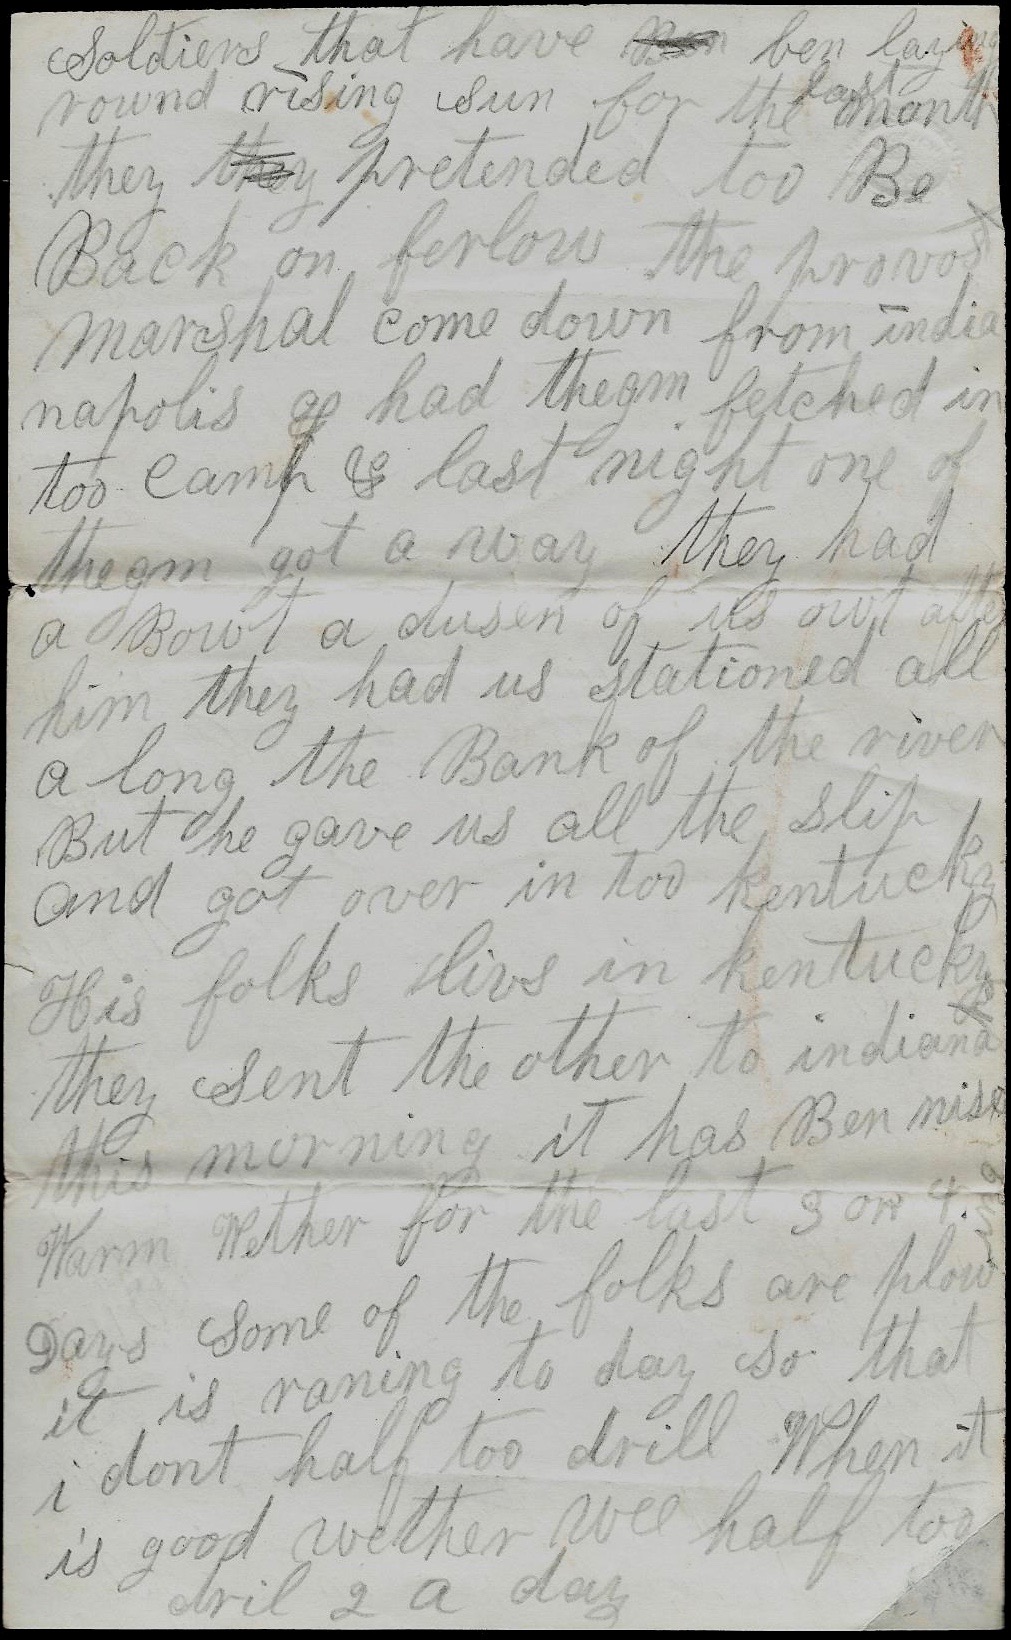 Soldiers that have ben laying
round rising sun for the last month
they they pretended too Be
Back on ferlow the provost
marshal come down from india
napolis & had thegm fetched in
too camp & last night one of
thegm got a way they had
a Bowt a dusen of us owt after
him they had us stationed all
a long the Bank of the river
But he gave us all the slip
and got over in too kentucky
His folks livs in kentucky
they sent the other to indiana
this morning it has Ben nise
Warm Wether for the last 3 or 4
Days Some of the folks are plow
ing
it is raning to day so that
i dont half too drill When it
is good wether wee half too
dril 2 a day